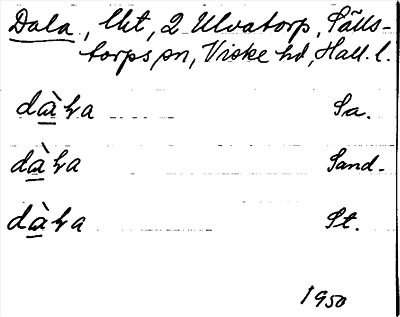 Dala, lht, 2 Ulvatorp, Sälls-
torps sn, Viske hd, Hall. l.
dàꞎa Sa.
dàꞎa Sand.
dàꞎa St.
1950